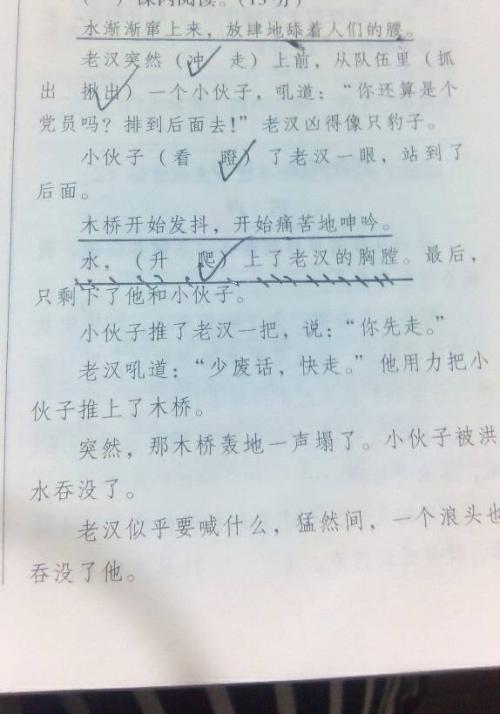 (一) 课内阅读。(15分)
水渐渐窜上来，放肆地舔着人们的腰。
老汉突然（冲 走）上前，从队伍里（抓
出 揪出）一个小伙子，吼道：“你还算是个
党员吗？排到后面去！”老汉凶得像只豹子。
小伙子（看 瞪）了老汉一眼，站到了
后面。
木桥开始发抖，开始痛苦地呻吟。
水，（升 爬）上了老汉的胸膛。最后，
只剩下了他和小伙子。
小伙子推了老汉一把，说：“你先走。”
老汉吼道：“少废话，快走。”他用力把小
伙子推上了木桥。
突然，那木桥轰地一声塌了。小伙子被洪
水吞没了。
老汉似乎要喊什么，猛然间，一个浪头也
吞没了他。